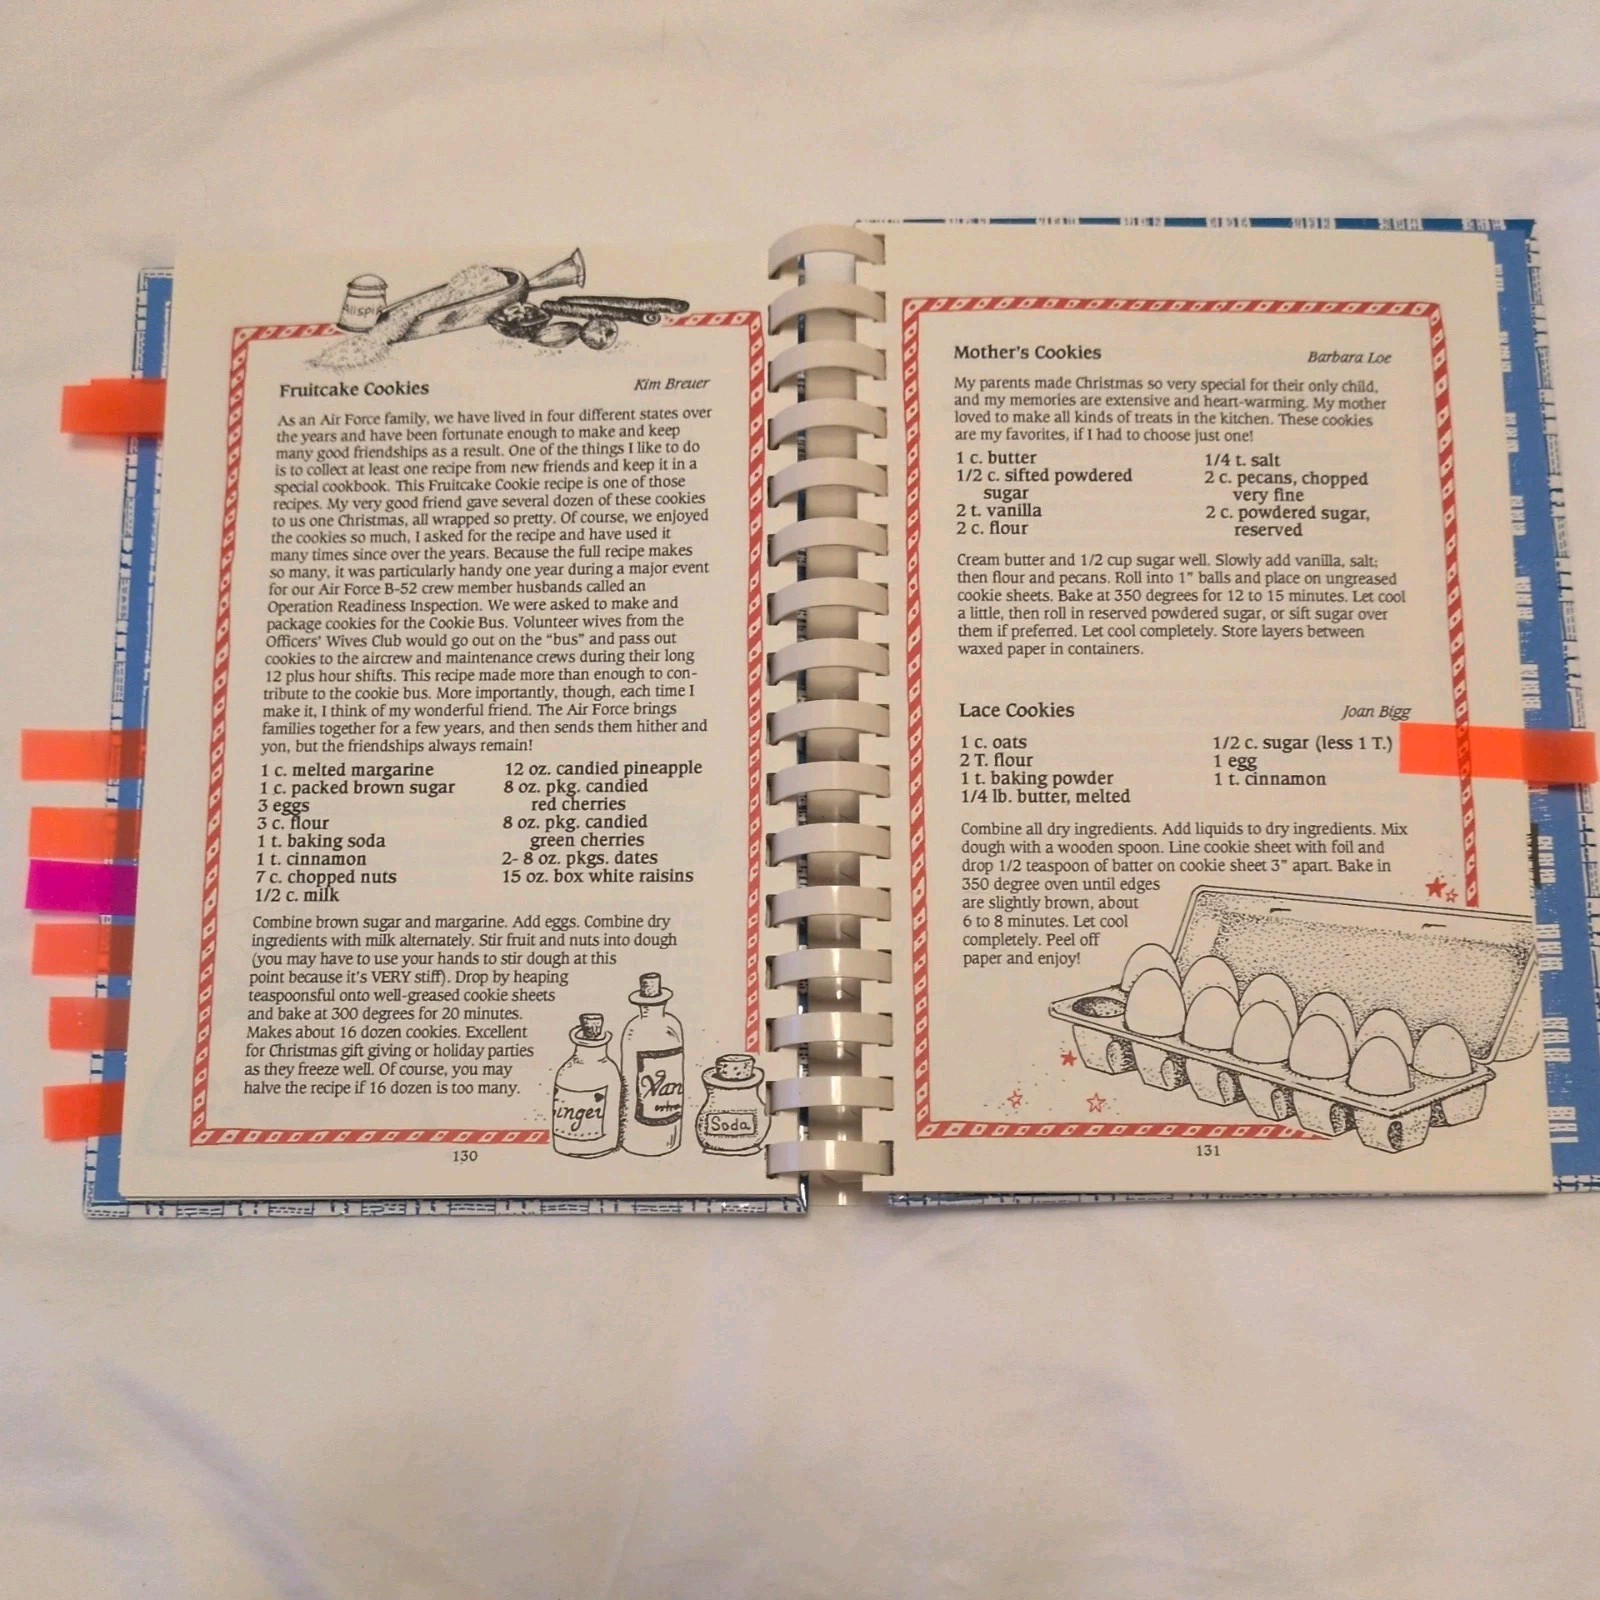 Allspi
Fruitcake Cookies
Kim Breuer
As an Air Force family, we have lived in four different states over
the years and have been fortunate enough to make and keep
many good friendships as a result. One of the things I like to do
is to collect at least one recipe from new friends and keep it in a
special cookbook. This Fruitcake Cookie recipe is one of those
recipes. My very good friend gave several dozen of these cookies
to us one Christmas, all wrapped so pretty. Of course, we enjoyed
the cookies so much, I asked for the recipe and have used it
many times since over the years. Because the full recipe makes
so many, it was particularly handy one year during a major event
for our Air Force B-52 crew member husbands called an
Operation Readiness Inspection. We were asked to make and
package cookies for the Cookie Bus. Volunteer wives from the
Officers' Wives Club would go out on the "bus" and pass out
cookies to the aircrew and maintenance crews during their long
12 plus hour shifts. This recipe made more than enough to con-
tribute to the cookie bus. More importantly, though, each time I
make it, I think of my wonderful friend. The Air Force brings
families together for a few years, and then sends them hither and
yon, but the friendships always remain!
1 c. melted margarine
1 c. packed brown sugar
3 eggs
3 c. flour
1 t. baking soda
1 t. cinnamon
7 c. chopped nuts
1/2 c. milk
12 oz. candied pineapple
8 oz. pkg. candied
red cherries
8 oz. pkg. candied
green cherries
2- 8 oz. pkgs. dates
15 oz. box white raisins
Combine brown sugar and margarine. Add eggs. Combine dry
ingredients with milk alternately. Stir fruit and nuts into dough
(you may have to use your hands to stir dough at this
point because it's VERY stiff). Drop by heaping
teaspoonsful onto well-greased cookie sheets
and bake at 300 degrees for 20 minutes.
Makes about 16 dozen cookies. Excellent
for Christmas gift giving or holiday parties
as they freeze well. Of course, you may
halve the recipe if 16 dozen is too many.
inger
Van
Soda
130
Mother's Cookies
Barbara Loe
My parents made Christmas so very special for their only child,
and my memories are extensive and heart-warming. My mother
loved to make all kinds of treats in the kitchen. These cookies
are my favorites, if I had to choose just one!
1 c. butter
1/2 c. sifted powdered
sugar
2 t. vanilla
2 c. flour
1/4 t. salt
2 c. pecans, chopped
very fine
2 c. powdered sugar,
reserved
Cream butter and 1/2 cup sugar well. Slowly add vanilla, salt;
then flour and pecans. Roll into 1" balls and place on ungreased
cookie sheets. Bake at 350 degrees for 12 to 15 minutes. Let cool
a little, then roll in reserved powdered sugar, or sift sugar over
them if preferred. Let cool completely. Store layers between
waxed paper in containers.
Lace Cookies
Joan Bigg
1 c. oats
2 T. flour
1 t. baking powder
1/4 lb. butter, melted
1/2 c. sugar (less 1 T.)
1 egg
1 t. cinnamon
Combine all dry ingredients. Add liquids to dry ingredients. Mix
dough with a wooden spoon. Line cookie sheet with foil and
drop 1/2 teaspoon of batter on cookie sheet 3" apart. Bake in
350 degree oven until edges
are slightly brown, about
6 to 8 minutes. Let cool
completely. Peel off
paper and enjoy!
131